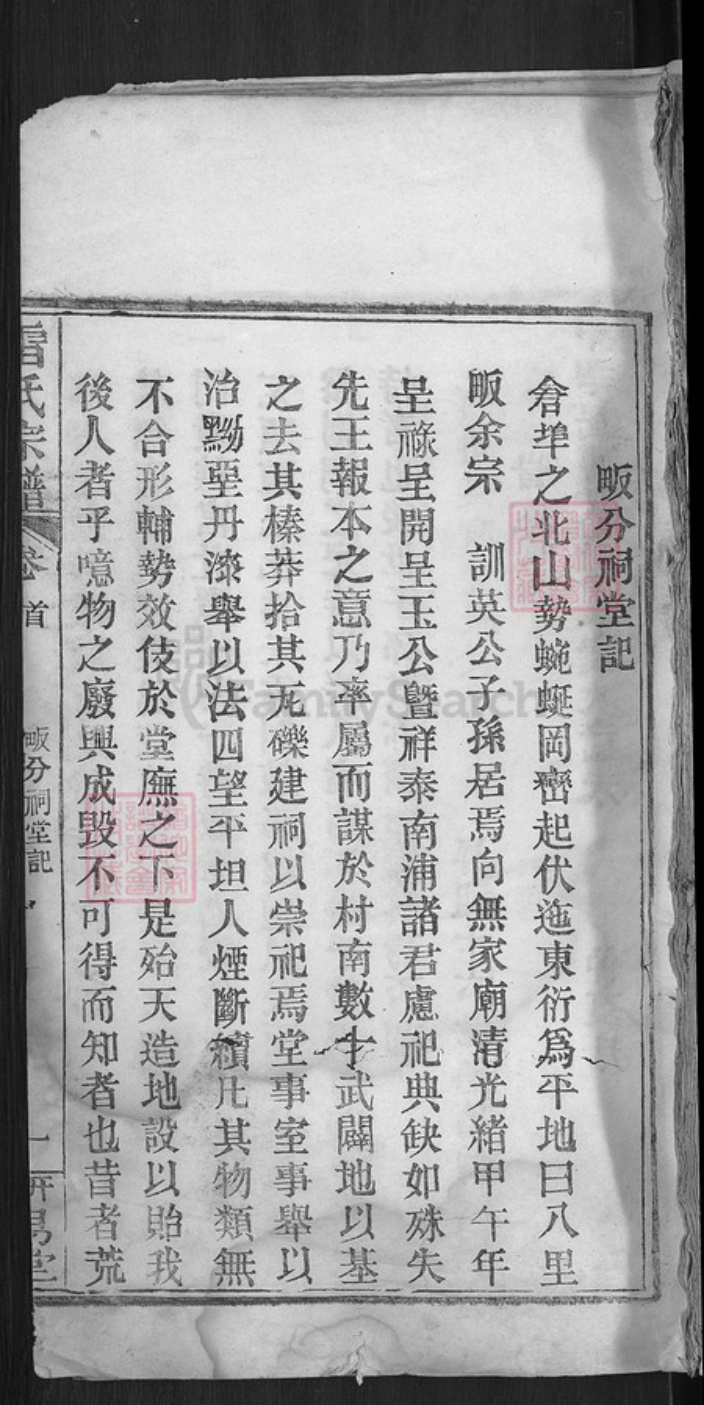 畈分祠堂記
倉埠之北山勢蜿蜒岡巒起伏迤東衍為平地曰八里
畈余宗　訓英公子孫居焉向無家廟清光緒甲午年
呈祿呈開呈玉公暨祥泰南浦諸君慮祀典缺如殊失
先王報本之意乃率屬而謀於村南數十武闢地以基
之去其榛莽拾其瓦礫建祠以崇祀焉堂事室事舉以
治黝堊丹漆舉以法四望平坦人煙斷續凡其物類無
不合形輔勢效伎於堂廡之下是殆天造地設以貽我
後人者乎噫物之廢興成毀不可得而知者也昔者荒
氏宗譜
卷首
畈分祠堂記
一
堂
FamilySearch